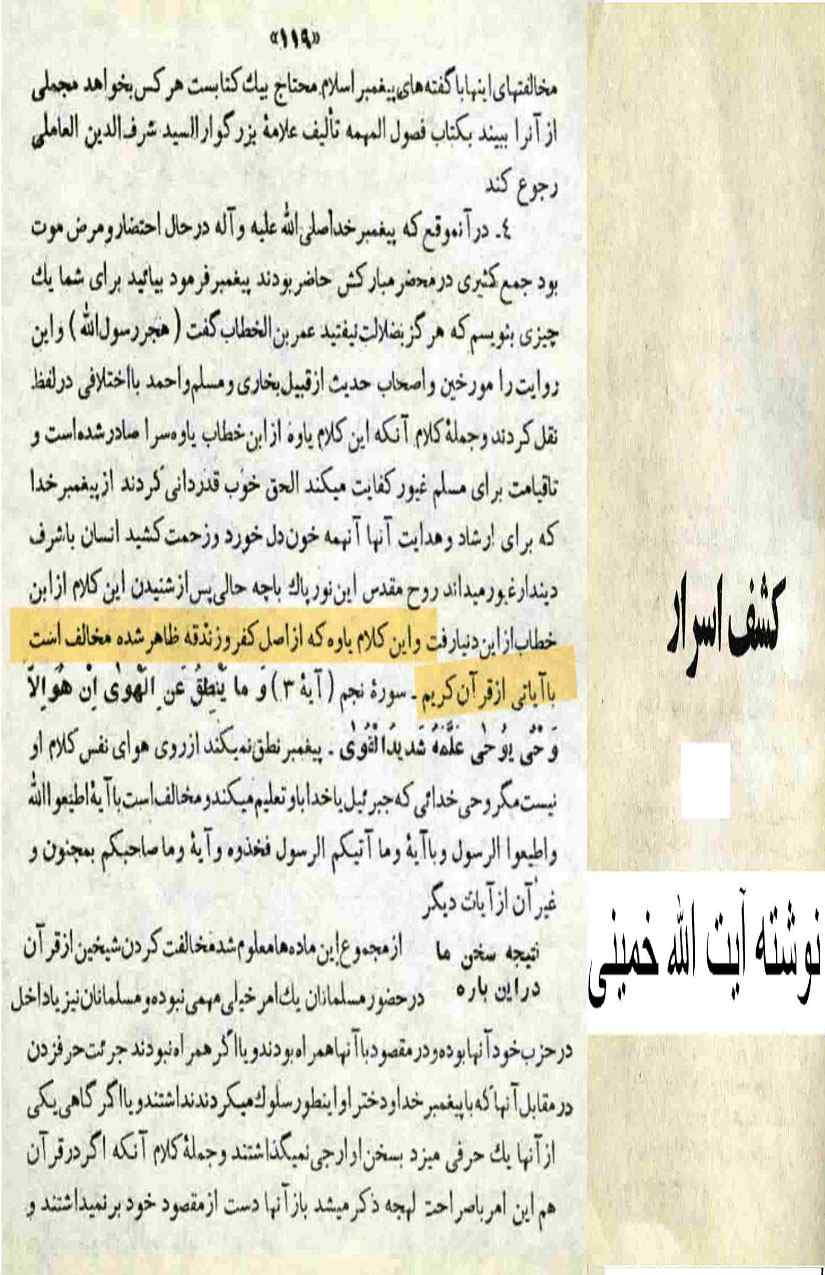 «۱۱۹»
مخالفتهای اینها با گفته‌های پیغمبر اسلام محتاج بیك کتابست هر کس بخواهد مجملی
از آنرا ببیند بکتاب فصول المهمه تألیف علامۀ بزرگوار السید شرف‌الدین العاملی
رجوع کند
٤ـ در آنموقع که پیغمبر خدا صلی الله علیه و آله در حال احتضار و مرض موت
بود جمع کثیری در محضر مبارکش حاضر بودند پیغمبر فرمود بیائید برای شما یك
چیزی بنویسم که هرگز بضلالت نیفتید عمر بن الخطاب گفت ( هجر رسول الله ) و این
روایت را مورخین و اصحاب حدیث از قبیل بخاری و مسلم و احمد با اختلافی در لفظ
نقل کردند و جملۀ کلام آنکه این کلام یاوه از ابن خطاب یاوه سرا صادر شده است و
تا قیامت برای مسلم غیور کفایت میکند الحق خوب قدردانی کردند از پیغمبر خدا
که برای ارشاد و هدایت آنها آنهمه خون دل خورد و زحمت کشید انسان باشرف
دیندار غیور میداند روح مقدس این نور پاك باچه حالی پس از شنیدن این کلام از ابن
خطاب از این دنیا رفت و این کلام یاوه که از اصل کفر و زندقه ظاهر شده مخالف است
با آیاتی از قرآن کریم ـ سورۀ نجم ( آیۀ ۳ ) وَ ما یَنْطِقُ عَنِ الْهَوٰی اِنْ هُوَ اِلاّ
وَحْیٌ یُوحٰی عَلَّمَهُ شَدیدُ الْقُوٰی ـ پیغمبر نطق نمیکند از روی هوای نفس کلام او
نیست مگر وحی خدائی که جبرئیل یا خدا باو تعلیم میکند و مخالف است با آیۀ اطیعوا الله
و اطیعوا الرسول و با آیۀ وما آتیکم الرسول فخذوه و آیۀ وما صاحبکم بمجنون و
غیر آن از آیات دیگر
نتیجه سخن ما در این باره
از مجموع این ماده‌ها معلوم شد مخالفت کردن شیخین از قرآن
در حضور مسلمانان یك امر خیلی مهمی نبوده و مسلمانان نیز یا داخل
در حزب خود آنها بوده و در مقصود با آنها همراه بودند و یا اگر همراه نبودند جرئت حرف زدن
در مقابل آنها که با پیغمبر خدا و دختر او اینطور سلوك میکردند نداشتند و یا اگر گاهی یکی
از آنها یك حرفی میزد بسخن او ارجی نمیگذاشتند و جملۀ کلام آنکه اگر در قرآن
هم این امر با صراحت لهجه ذکر میشد باز آنها دست از مقصود خود بر نمیداشتند و
کشف اسرار
نوشته آیت الله خمینی